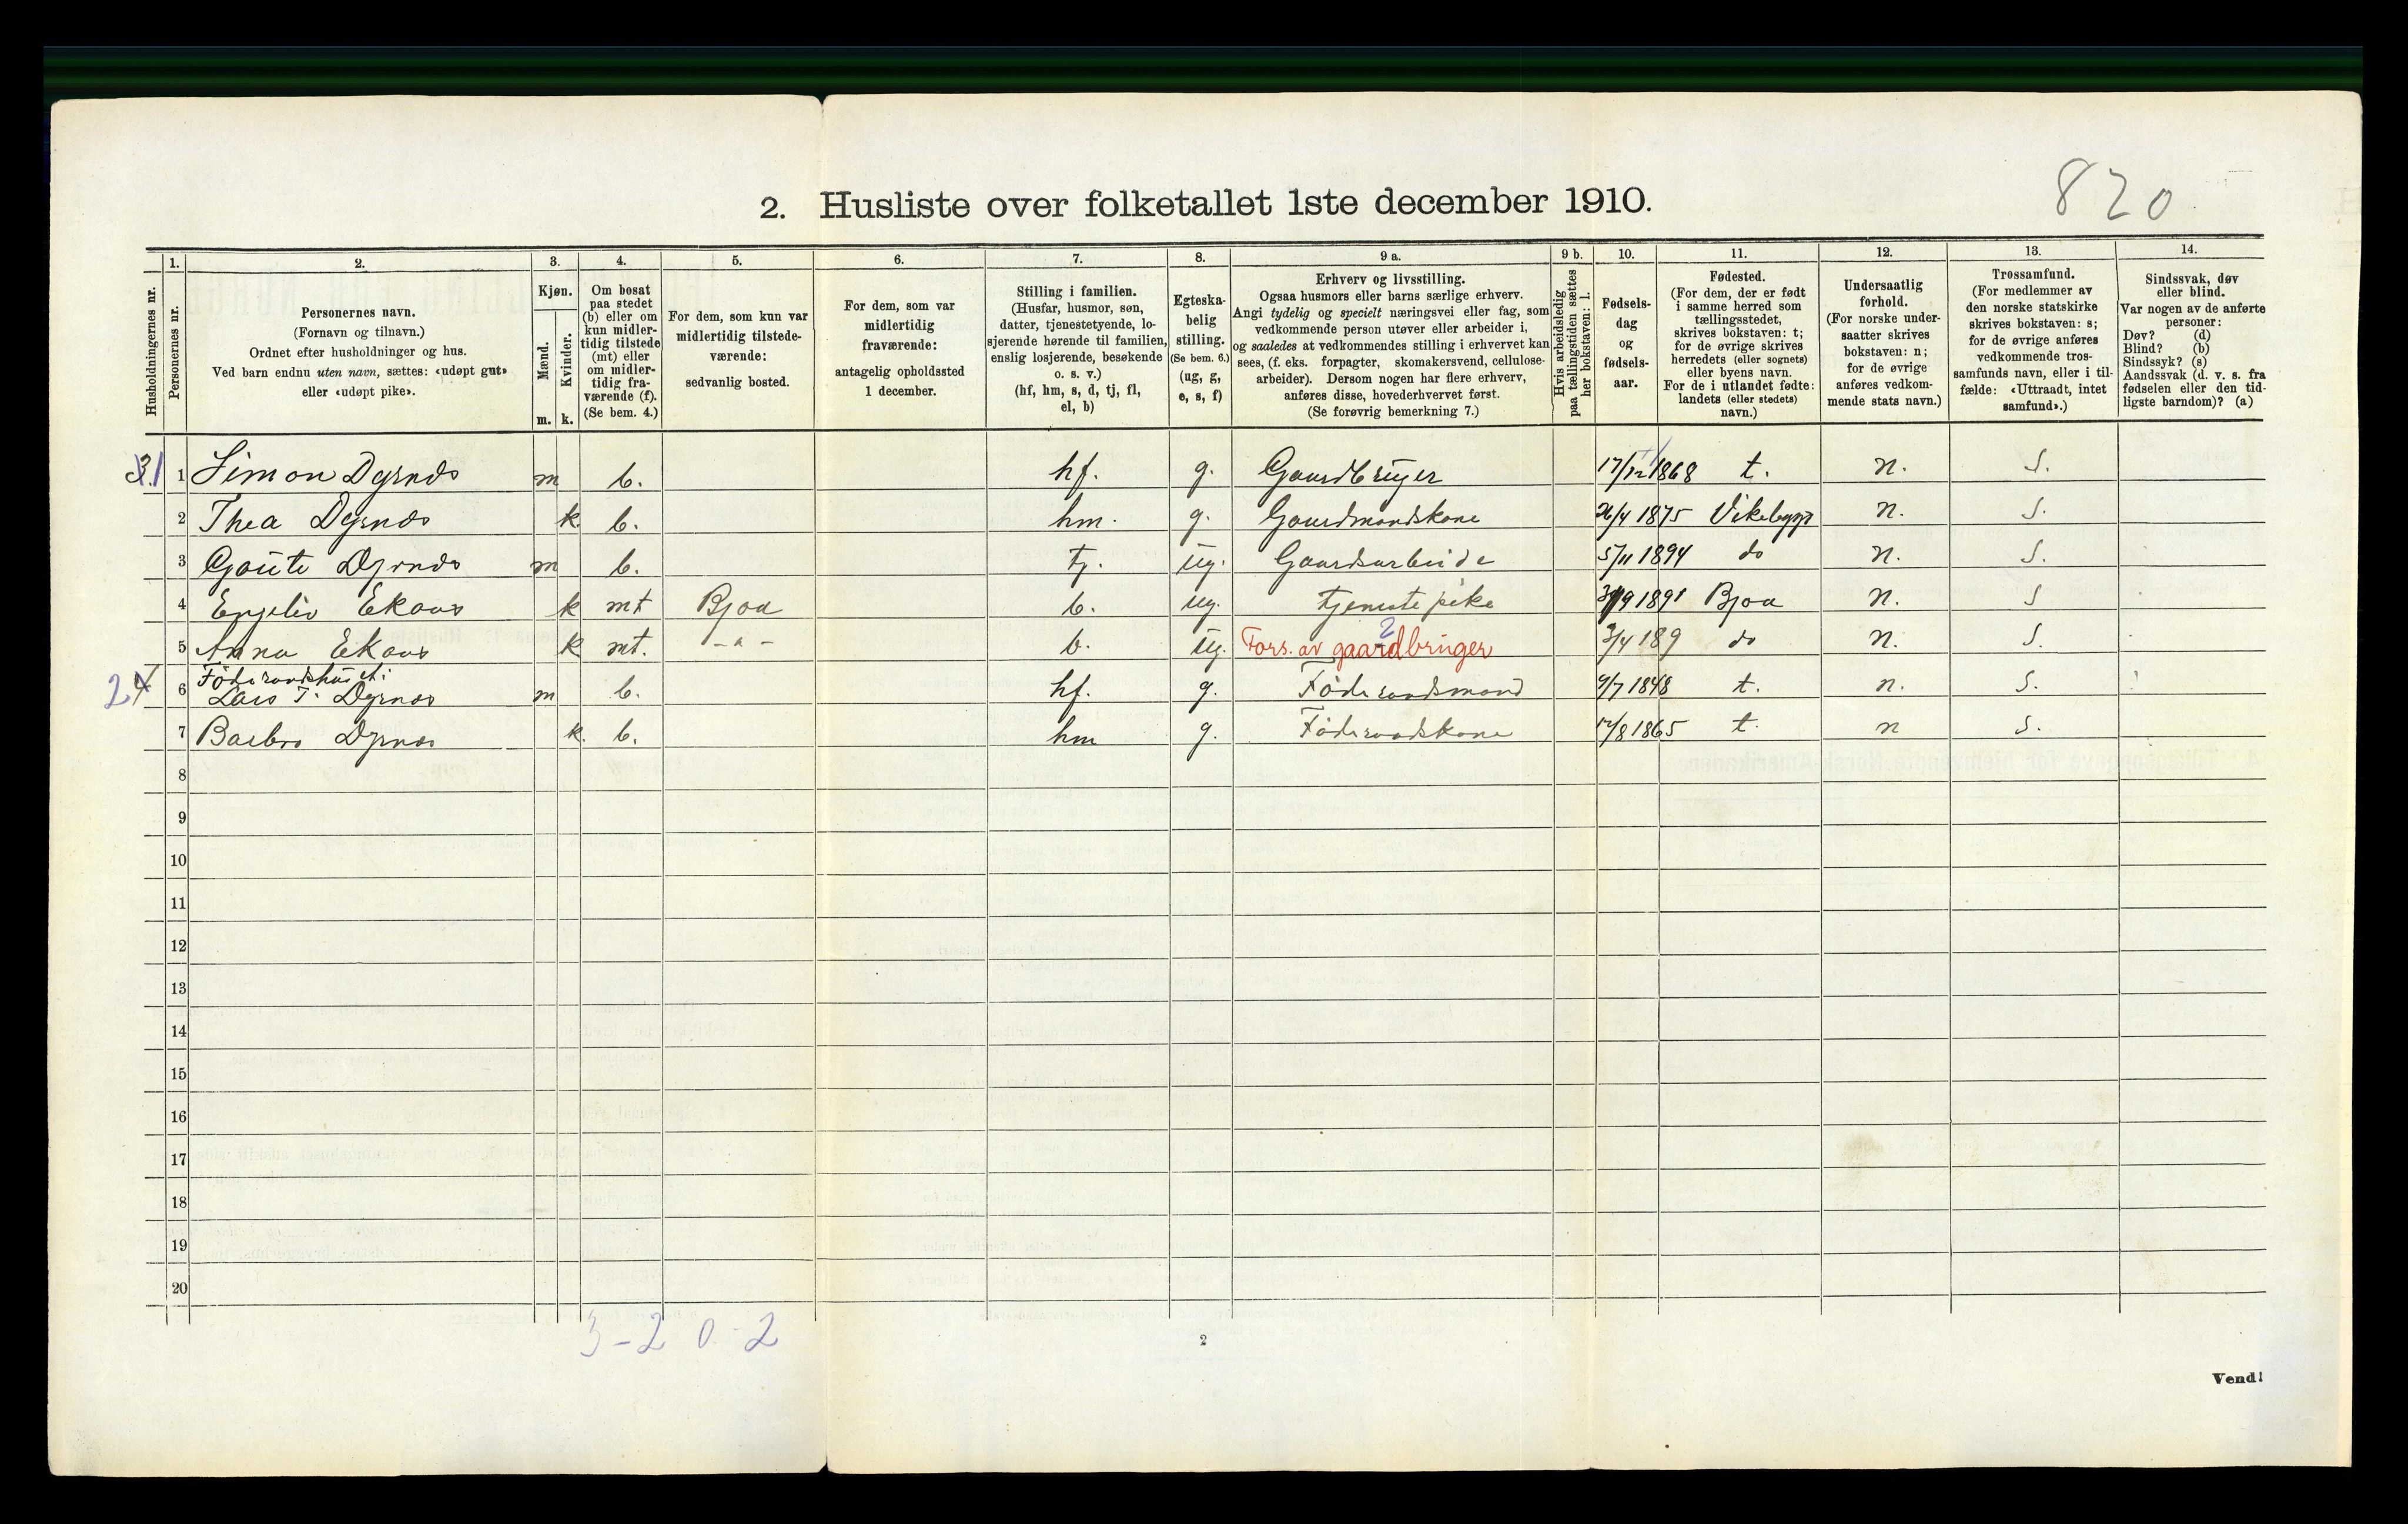 820
2. Husliste over folketallet 1ste december 1910.
Husholdningernes nr.
1.
Personernes nr.
2.
Personernes navn.
(Fornavn og tilnavn.)
Ordnet efter husholdninger og hus.
Ved barn endnu uten navn, sættes: «udøpt gut»
eller «udøpt pike».
3.
Kjøn.
Mænd.
Kvinder.
m. k.
4.
Om bosat
paa stedet
(b) eller om
kun midler-
tidig tilstede
(mt) eller
om midler-
tidig fra-
værende (f).
(Se bem. 4.)
5.
For dem, som kun var
midlertidig tilstede-
værende:
sedvanlig bosted.
6.
For dem, som var
midlertidig
fraværende:
antagelig opholdssted
1 december.
7.
Stilling i familien.
(Husfar, husmor, søn,
datter, tjenestetyende, lo-
sjerende hørende til familien,
enslig losjerende, besøkende
o. s. v.)
(hf, hm, s, d, tj, fl,
el, b)
8.
Egteska-
belig
stilling.
(Se bem. 6.)
(ug, g,
e, s, f)
9 a.
Erhverv og livsstilling.
Ogsaa husmors eller barns særlige erhverv.
Angi tydelig og specielt næringsvei eller fag, som
vedkommende person utøver eller arbeider i,
og saaledes at vedkommendes stilling i erhvervet kan
sees, (f. eks. forpagter, skomakersvend, cellulose-
arbeider). Dersom nogen har flere erhverv,
anføres disse, hovederhvervet først.
(Se forøvrig bemerkning 7.)
9 b.
Hvis arbeidsledig
paa tællingstiden sættes
her bokstaven: l.
10.
Fødsels-
dag
og
fødsels-
aar.
11.
Fødested.
(For dem, der er født
i samme herred som
tællingsstedet,
skrives bokstaven: t;
for de øvrige skrives
herredets (eller sognets)
eller byens navn.
For de i utlandet fødte:
landets (eller stedets)
navn.)
12.
Undersaatlig
forhold.
(For norske under-
saatter skrives
bokstaven: n;
for de øvrige
anføres vedkom-
mende stats navn.)
13.
Trossamfund.
(For medlemmer av
den norske statskirke
skrives bokstaven: s;
for de øvrige anføres
vedkommende tros-
samfunds navn, eller i til-
fælde: «Uttraadt, intet
samfund».)
14.
Sindssvak, døv
eller blind.
Var nogen av de anførte
personer:
Døv? (d)
Blind? (b)
Sindssyk? (s)
Aandssvak (d. v. s. fra
fødselen eller den tid-
ligste barndom)? (a)
1 Simon Dyrnes m b. hf. g. Gaardbruger 17/12 1868 t. n. S.
2 Thea Dyrnes k. b. hm. g. Gaardmandskone 26/4 1875 Vikebygd n. S.
3 Gaute Dyrnes m b. tj. ug. Gaardsarbeide 5/11 1894 do n. S.
4 Engeliv Ekaas k mt Bjoa b. ug. tjeneste pike 1891 Bjoa n. S
2
5 Anna Ekaas k mt. -"- b. ug. Fors. av gaardbruger 3/4 189 do n. S.
Føderaadshuset:
2 6 Lars T. Dyrnes m b. hf. g. Føderaadsmand 9/7 1848 t. n. S.
7 Barbro Dyrnes k. b. hm g. Føderaadskone 12/8 1865 t. n S.
8
9
10
11
12
13
14
15
16
17
18
19
20
3-2 0-2
2
Vend!